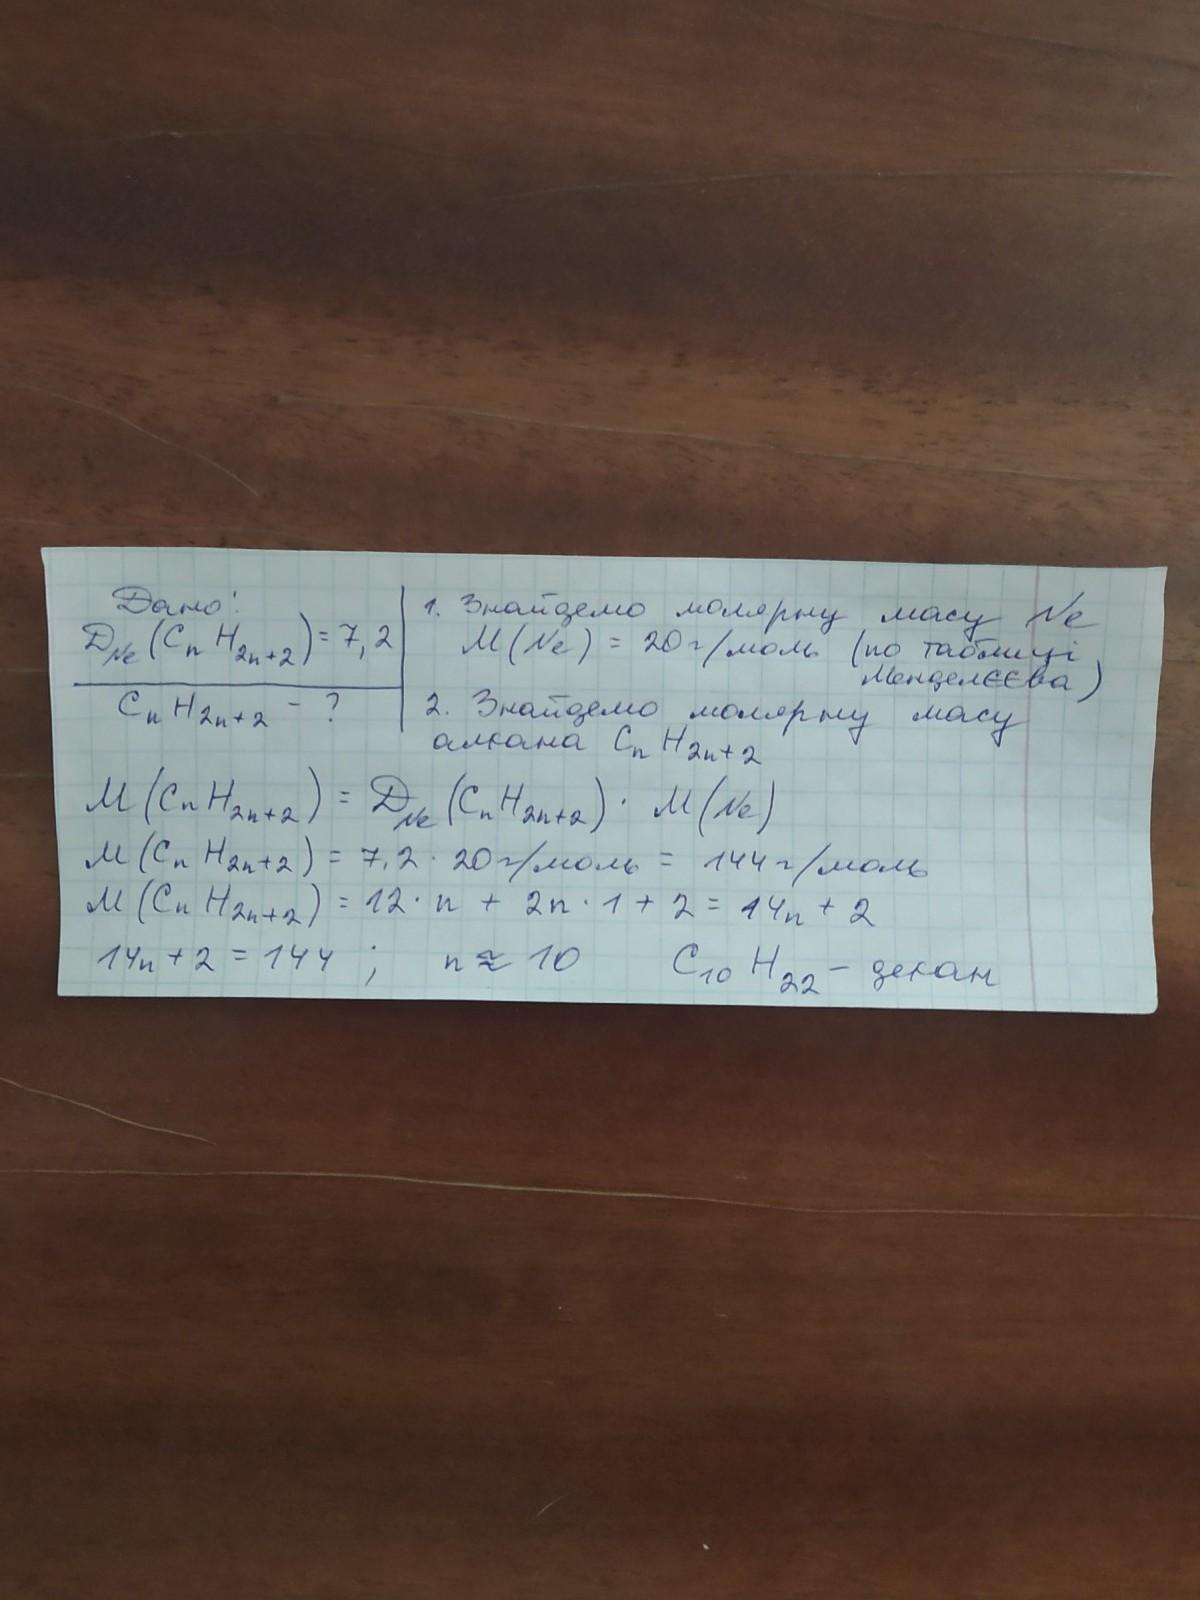 Дано:
D_Ne (C_n H_2n+2) = 7,2
C_n H_2n+2 - ?
1. Знайдемо молярну масу Ne
M(Ne) = 20 г/моль (по таблиці
Менделєєва)
2. Знайдемо молярну масу
алкана C_n H_2n+2
M(C_n H_2n+2) = D_Ne (C_n H_2n+2) · M(Ne)
M(C_n H_2n+2) = 7,2 · 20 г/моль = 144 г/моль
M(C_n H_2n+2) = 12 · n + 2n · 1 + 2 = 14n + 2
14n + 2 = 144 ; n ≈ 10 C_10 H_22 - декан